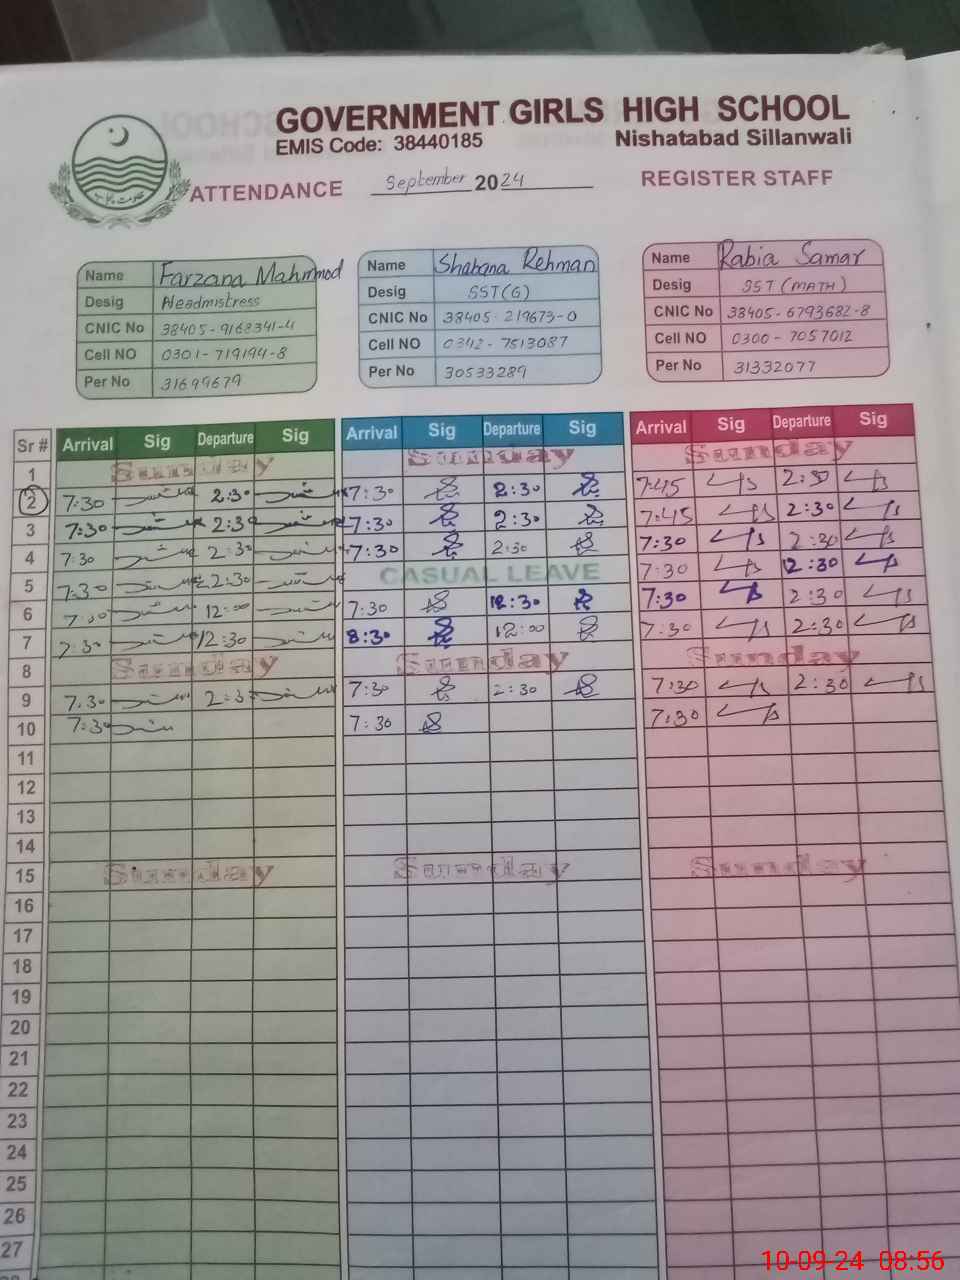 GOVERNMENT GIRLS HIGH SCHOOL
EMIS Code: 38440185 Nishatabad Sillanwali
ATTENDANCE September 2024 REGISTER STAFF
Name Farzana Mahmmod
Desig Headmistress
CNIC No 38405-9168341-4
Cell NO 0301-719194-8
Per No 31699679
Name Shabana Rehman
Desig SST(G)
CNIC No 38405-219673-0
Cell NO 0342-7513087
Per No 30533289
Name Rabia Samar
Desig SST (MATH)
CNIC No 38405-6793682-8
Cell NO 0300-7057012
Per No 31332077
Sr # Arrival Sig Departure Sig Arrival Sig Departure Sig Arrival Sig Departure Sig
1 Sunday Sunday Sunday
2 7:30 2:30 7:30 2:30 7:45 2:30
3 7:30 2:30 7:30 2:30 7:45 2:30
4 7:30 2:30 7:30 2:30 7:30 2:30
5 7:30 2:30 CASUAL LEAVE 7:30 12:30
6 12:00 7:30 12:30 7:30 2:30
7 7:30 12:30 8:30 12:00 7:30 2:30
8 Sunday Sunday Sunday
9 7:30 2:3 7:30 2:30 7:30 2:30
10 7:30 7:30 7:30
11
12
13
14
15 Sunday Sunday Sunday
16
17
18
19
20
21
22
23
24
25
26
27
10-09-24 08:56